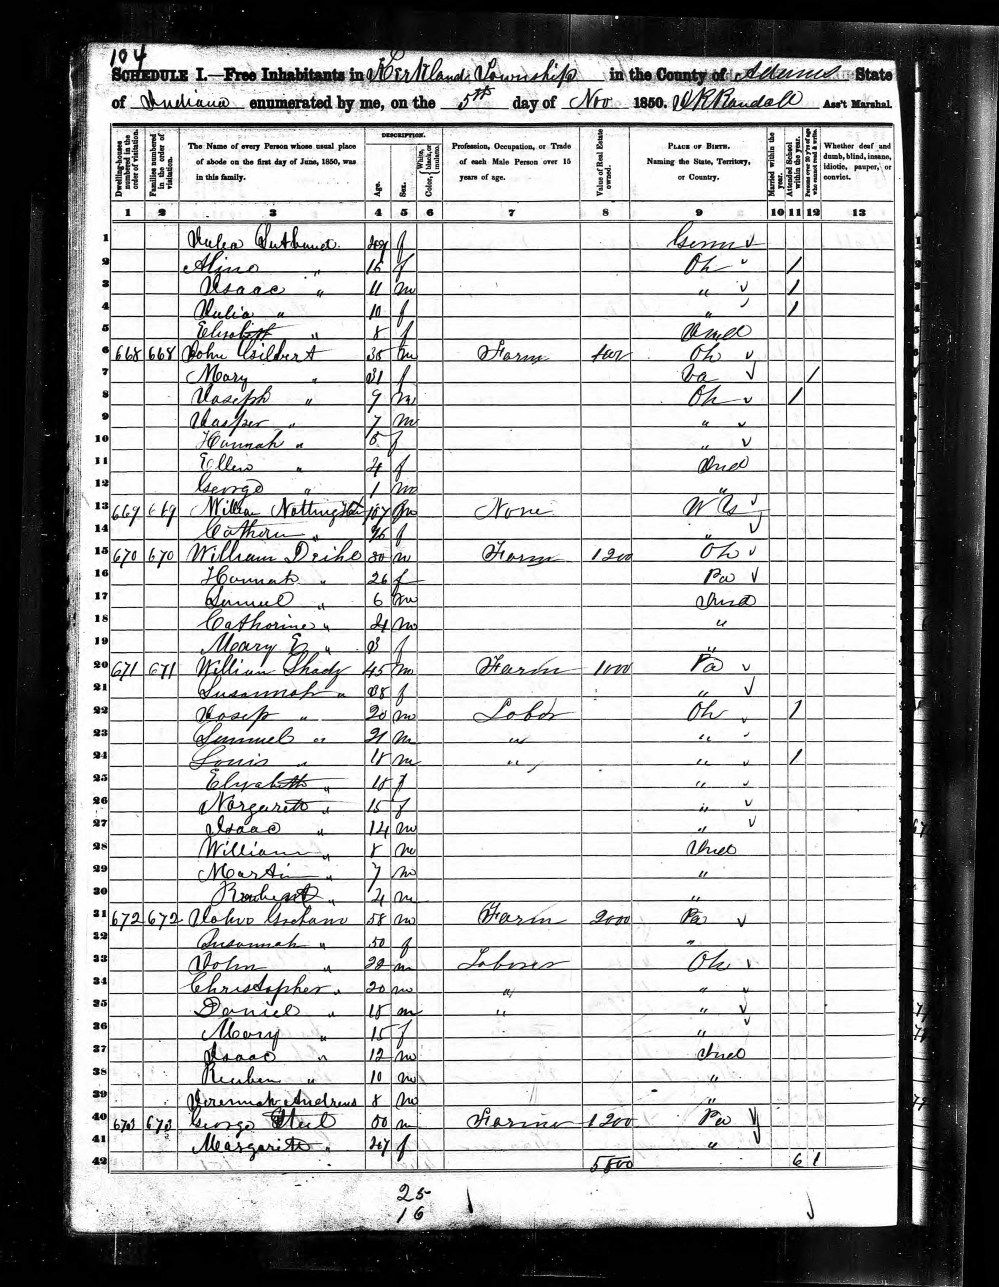 104
SCHEDULE I.—Free Inhabitants in Kirkland Township in the County of Adams State
of Indiana enumerated by me, on the 5th day of Nov 1850. Randall Ass't Marshal.
Dwelling-houses numbered in the order of visitation.
Families numbered in the order of visitation.
The Name of every Person whose usual place of abode on the first day of June, 1850, was in this family.
DESCRIPTION.
Age.
Sex.
Color, { White, black, or mulatto.
Profession, Occupation, or Trade of each Male Person over 15 years of age.
Value of Real Estate owned.
PLACE OF BIRTH. Naming the State, Territory, or Country.
Married within the year.
Attended School within the year.
Persons over 20 y'rs of age who cannot read & write.
Whether deaf and dumb, blind, insane, idiotic, pauper, or convict.
1 2 3 4 5 6 7 8 9 10 11 12 13
1 Julia f Germ
2 16 f Oh 1
3 Isaac " 11 m " 1
4 Julia " 10 f " 1
5 " 8 f Ind
6 668 668 John Gilbert 38 m Farm Oh
7 Mary " 31 f Va 1
8 Joseph " 9 m Oh 1
9 Jasper " 7 m "
10 Hannah " 5 f "
11 Ellen " 4 f Ind
12 George " 1 m "
13 669 669 m None
14 " f "
15 670 670 William Deihl 30 m Farm 1200 Oh
16 Hannah " 26 f Pa
17 Samuel " 6 m Ind
18 Catharine " m "
19 Mary E " 3 f "
20 671 671 William Shady 45 m Farm 1000 Pa
21 Susannah " 38 f "
22 Josep " 20 m Labor Oh 1
23 Sammuel " 21 m " "
24 Louis " 18 m " " 1
25 Elizabeth " 18 f "
26 Margarett " 15 f "
27 Isaac " 14 m "
28 William " 8 m Ind
29 Martin " 7 m "
30 " m "
31 672 672 58 m Farm 2000 Pa
32 Susannah " 50 f "
33 John " m Laborer Oh
34 Christopher " 20 m " "
35 Daniel " 18 m " "
36 Mary " 15 f "
37 Isaac " 12 m Ind
38 Reuben " 10 m "
39 Jeremiah Andrews 8 m "
40 673 673 George Steel m Farmer 1200 Pa
41 Margarite " f "
42 5800 6 1
25
16